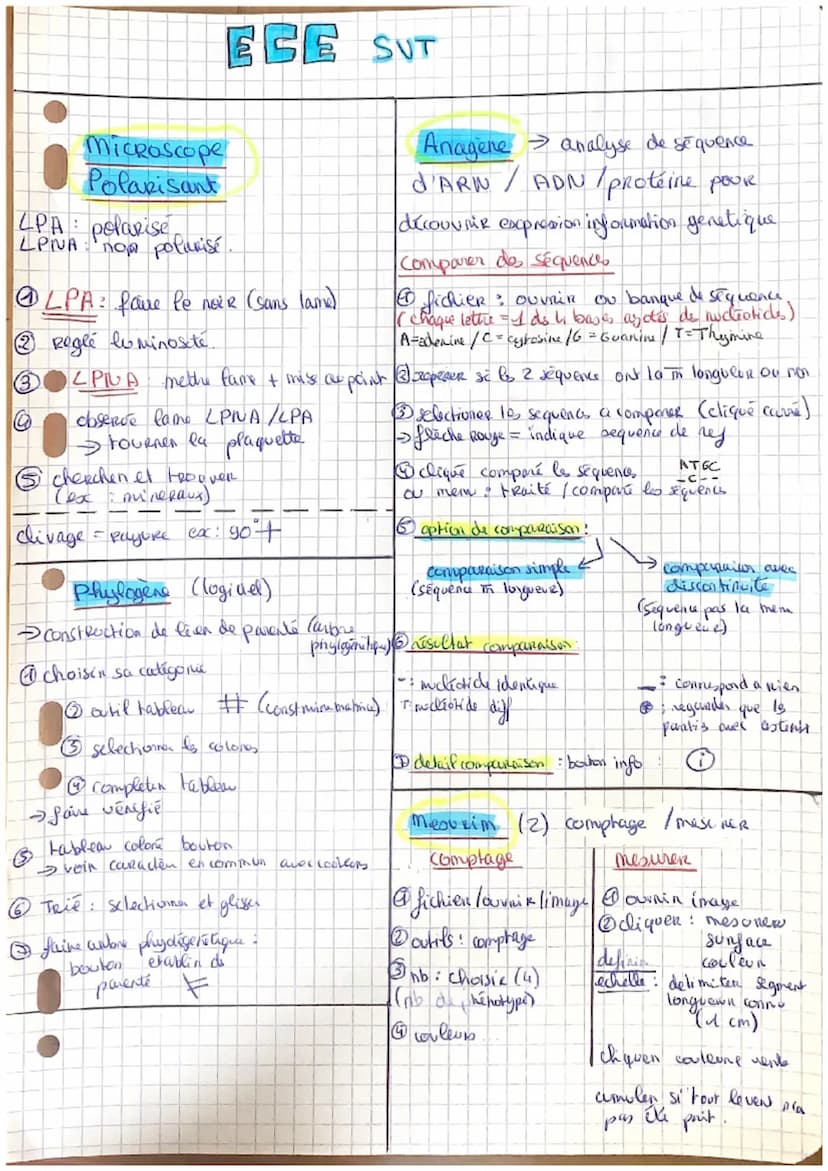 ECE SVT
Microscope
Polarisant
LPA : polarisé
LPNA : non polarisé.
① LPA : faire le noir (sans lame)
② Reglé luminosité.
③ LPNA mettre lame + mise au point
④ observé lame LPNA / LPA
→ tourner la plaquette
⑤ chercher et trouver
(ex : mineraux)
clivage = rayure ex : 90° +
Phylogène (logiciel)
→ construction de lien de parenté (arbre
phylogénétique)
① choisir sa catégorie
② outil tableau # (construire matrice)
③ selectionner les colones
④ completer tableau
→ faire vérifié
⑤ tableau coloré bouton
→ voir caractère en commun avec couleurs
⑥ Trié : selectionner et glisser
⑦ faire arbre phylogénétique :
bouton établir de
parenté
Anagène → analyse de séquence
d'ARN / ADN / protéine pour
découvrir expression information genetique
Comparer des séquences
① fichier : ouvrir ou banque de séquence
(chaque lettre = 1 des 4 bases azotés de nucléotides)
A=adenine / C = cytosine / G = Guanine / T = Thymine
② si les 2 séquence ont la m̂ longueur ou non
③ selectionner les sequences a comparer (cliqué carré)
→ flèche rouge = indique sequence de ref
④ cliqué comparé les séquences ATGC
-C--
ou menu : traité / comparé les séquences
⑤ option de comparaison :
comparaison simple
(séquence m̂ longueur)
comparaison avec
discontinuité
(séquence pas la mem
longueur)
⑥ résultat comparaison :
- : nucléotide identique
T : nucléotide diff
_ : correspond a rien
* : regarder que les
partis avec
⑦ detail comparaison : bouton info : ⓘ
Mesurim (2) comptage / mesurer
Comptage
① fichier / ouvrir / image
② outils : comptage
③ nb : choisie (4)
(nb de phénotype)
④ couleurs
mesurer
① ouvrir image
② cliquer : mesurer
surface
couleur
définir
echelle : délimiter segment
longueur connu
(1 cm)
cliquer couleure verte
cumuler si tout le vert n'a
pas été prit.